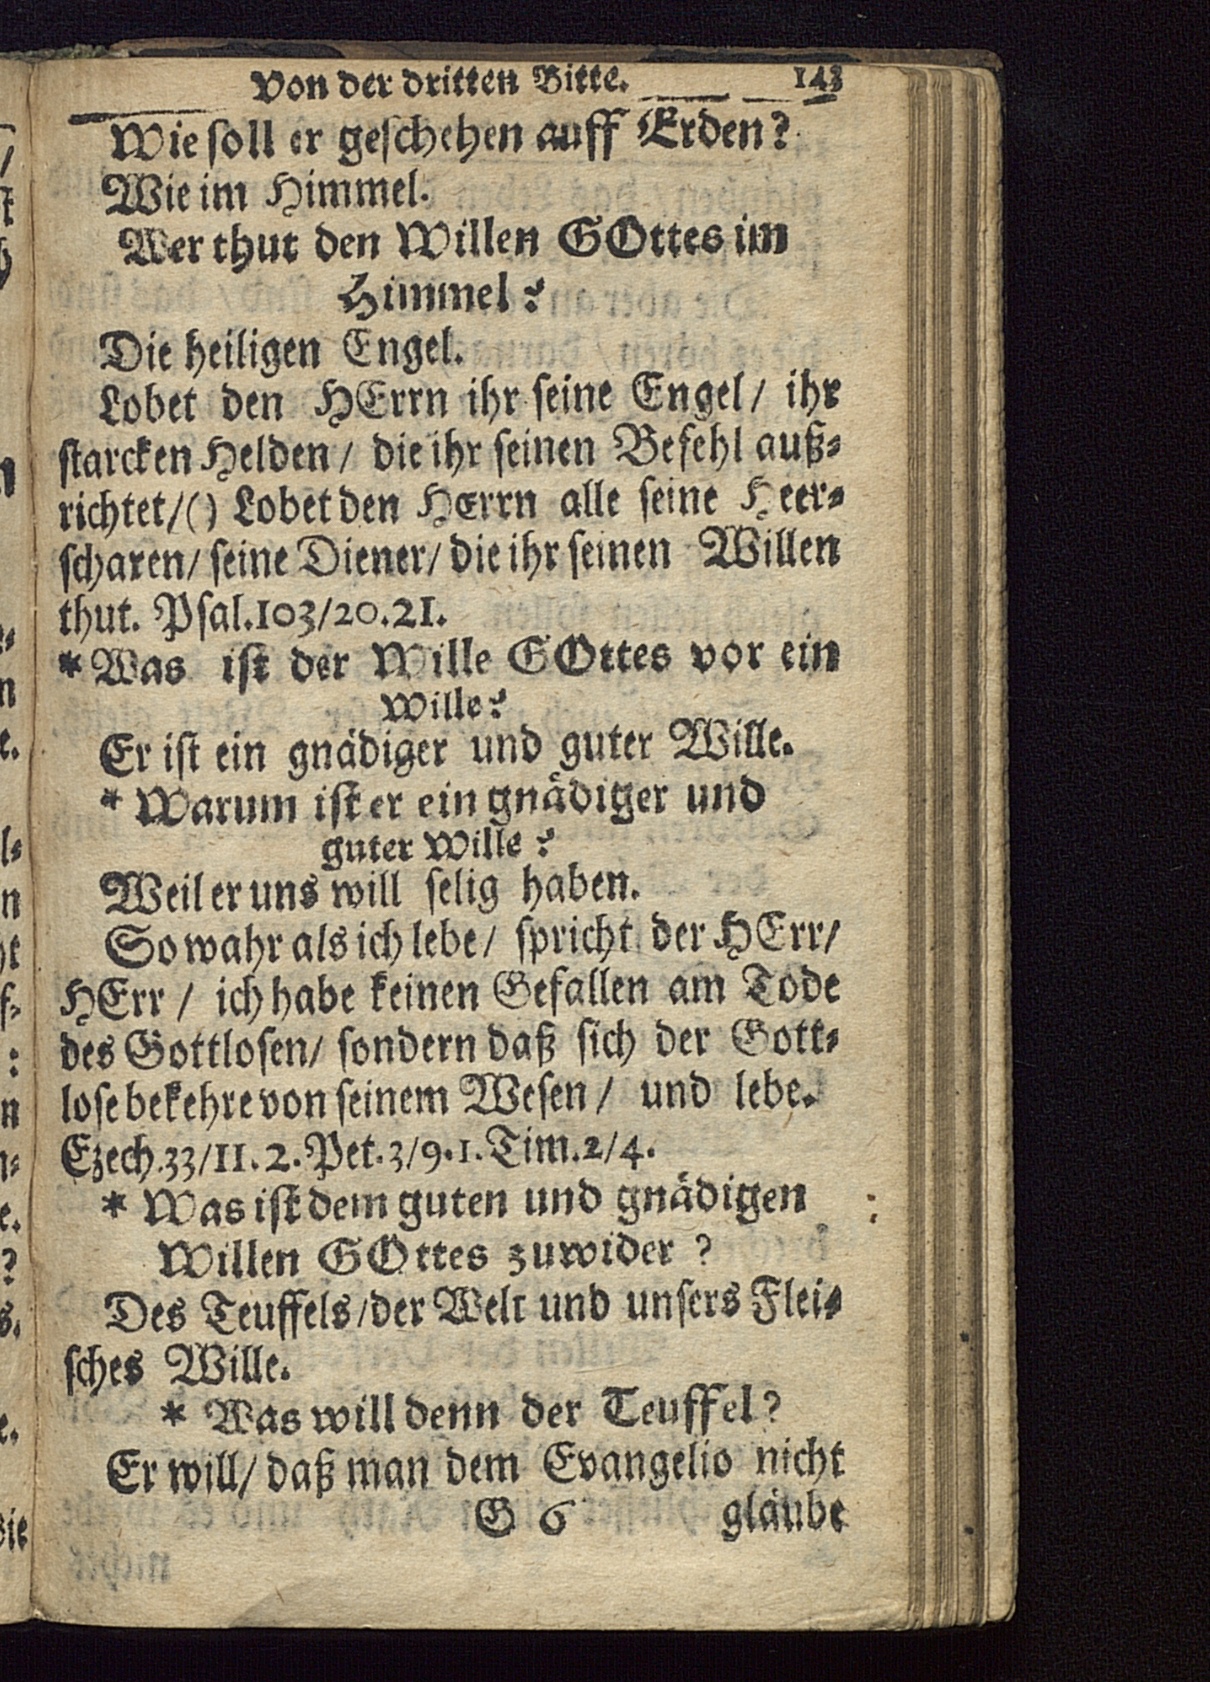 Von der dritten Bitte. 143
Wie soll er geschehen auff Erden?
Wie im Himmel.
Wer thut den Willen GOttes im
Himmel?
Die heiligen Engel.
Lobet den HErrn ihr seine Engel/ ihr
starcken Helden/ die ihr seinen Befehl auß-
richtet/() Lobet den HErrn alle seine Heer-
scharen/ seine Diener/ die ihr seinen Willen
thut. Psal.103/20.21.
* Was ist der Wille GOttes vor ein
Wille?
Er ist ein gnädiger und guter Wille.
* Warum ist er ein gnädiger und
guter Wille?
Weil er uns will selig haben.
So wahr als ich lebe/ spricht der HErr/
HErr/ ich habe keinen Gefallen am Tode
des Gottlosen/ sondern daß sich der Gott-
lose bekehre von seinem Wesen/ und lebe.
Ezech.33/11. 2. Pet. 3/9. 1. Tim. 2/4.
* Was ist dem guten und gnädigen
Willen GOttes zuwider?
Des Teuffels/ der Welt und unsers Flei-
sches Wille.
* Was will denn der Teuffel?
Er will/ daß man dem Evangelio nicht
G 6 gläube